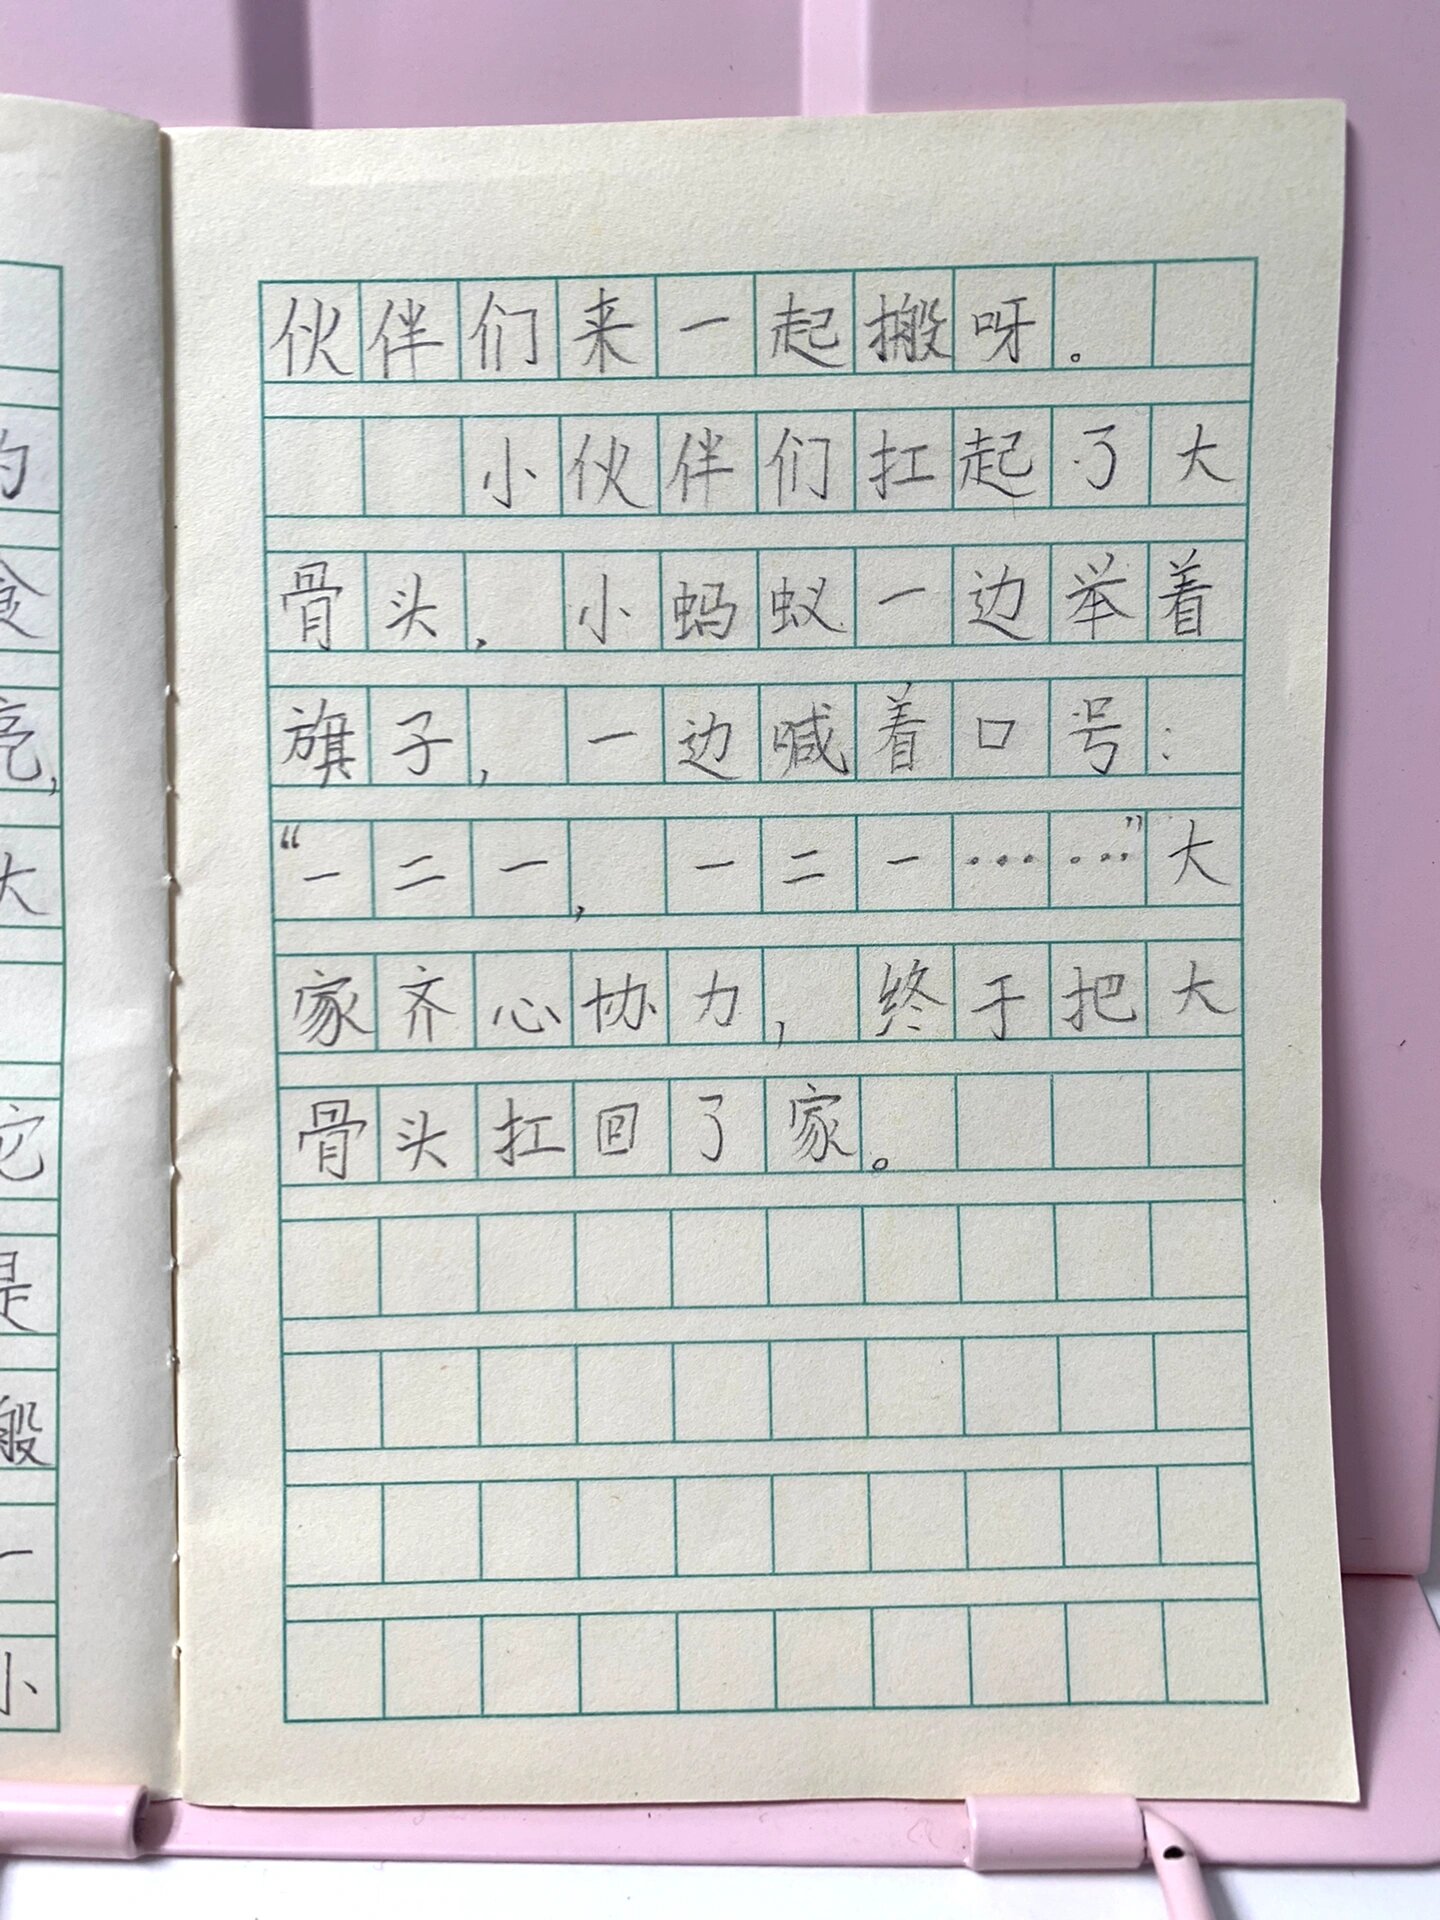 伙伴们来一起搬呀。
小伙伴们扛起了大
骨头，小蚂蚁一边举着
旗子，一边喊着口号：
“一二一，一二一……”大
家齐心协力，终于把大
骨头扛回了家。